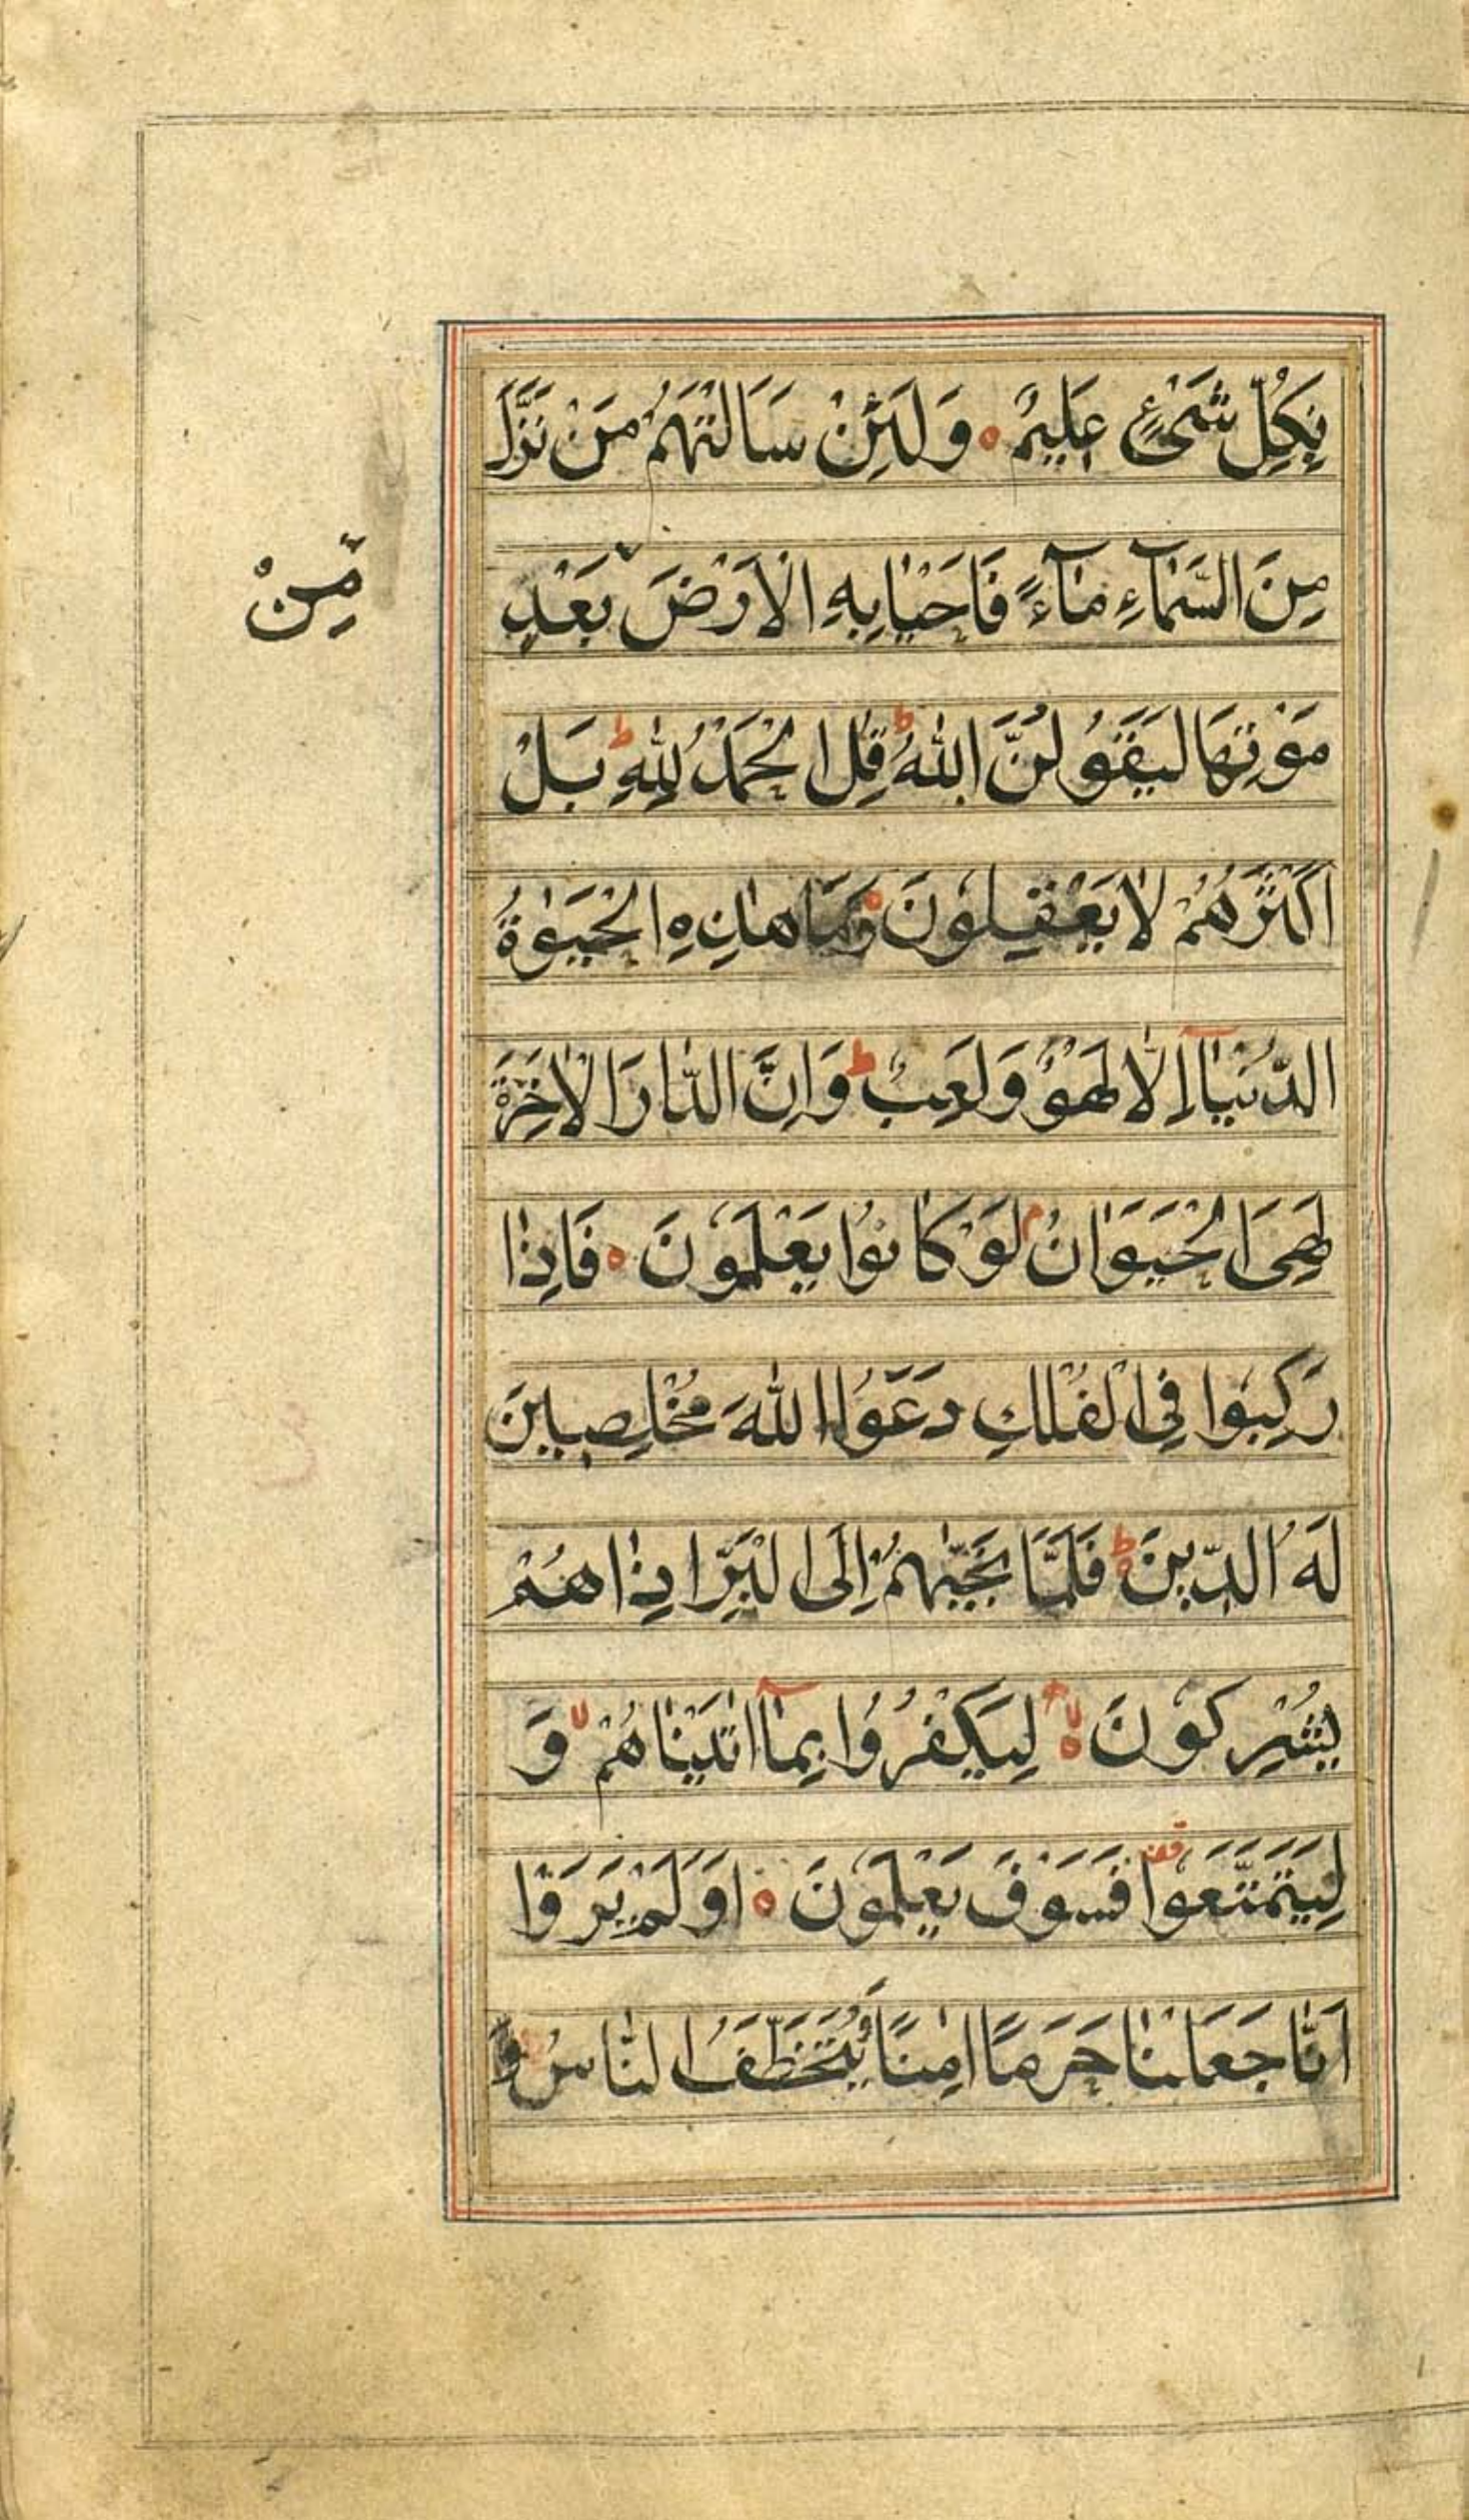 بِكُلِّ شَيْءٍ عَلِيمٌ ۝ وَلَئِنْ سَاَلْتَهُمْ مَنْ نَزَّلَ
مِنَ السَّمَآءِ مَآءً فَاَحْيَا بِهِ الْاَرْضَ بَعْدِ
مِّنْ
مَوْتِهَا لَيَقُولُنَّ اللهُ ط قُلِ الْحَمْدُ لِلّٰهِ ط بَلْ
اَكْثَرُهُمْ لَا يَعْقِلُونَ ۝ وَمَا هٰذِهِ الْحَيٰوةُ
الدُّنْيَآ اِلَّا لَهْوٌ وَلَعِبٌ ط وَاِنَّ الدَّارَ الْاٰخِرَةَ
لَهِيَ الْحَيَوَانُ م لَوْ كَانُوا يَعْلَمُونَ ۝ فَاِذَا
رَكِبُوا فِي الْفُلْكِ دَعَوُا اللهَ مُخْلِصِينَ
لَهُ الدِّينَ ط فَلَمَّا نَجّٰيهُمْ اِلَى الْبَرِّ اِذَا هُمْ
يُشْرِكُونَ ۝ لا لِيَكْفُرُوا بِمَآ اٰتَيْنَاهُمْ لا وَ
لِيَتَمَتَّعُوا قف فَسَوْفَ يَعْلَمُونَ ۝ اَوَلَمْ يَرَوْا
اَنَّا جَعَلْنَا حَرَمًا اٰمِنًا وَيُتَخَطَّفُ النَّاسُ